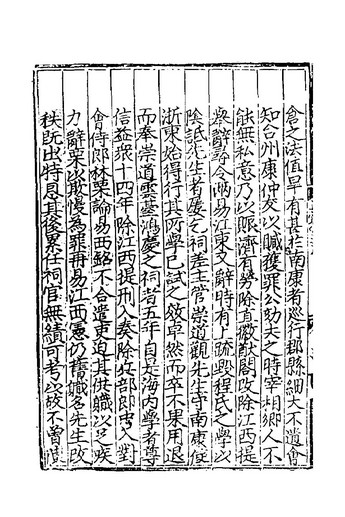 倉之法值旱有甚於南康者巡行郡縣細大不遺會
知台州唐仲友以贓獲罪公劾夫之時宰相鄉人不
能無私意乃以賑濟有勞除直徽猷閣改除江西提
辭詔令兩易江東又辭時有上疏毀程氏之學以
陰詆先生者屢乞祠差主管崇道觀先生守南康使
浙東始得行其所學已試之效卓然而卒不果用退
而奉崇道雲臺鴻慶之祠者五年自是海内學者尊
信益衆十四年除江西提刑入奏除吏部郎中入對
會侍郎林栗論易西銘不合遣吏迫其供職以足疾
力辭栗以欺慢為罪再易江西憲仍舊職名先生改
秩既出特恩其後累任祠官無績可考以故不曾